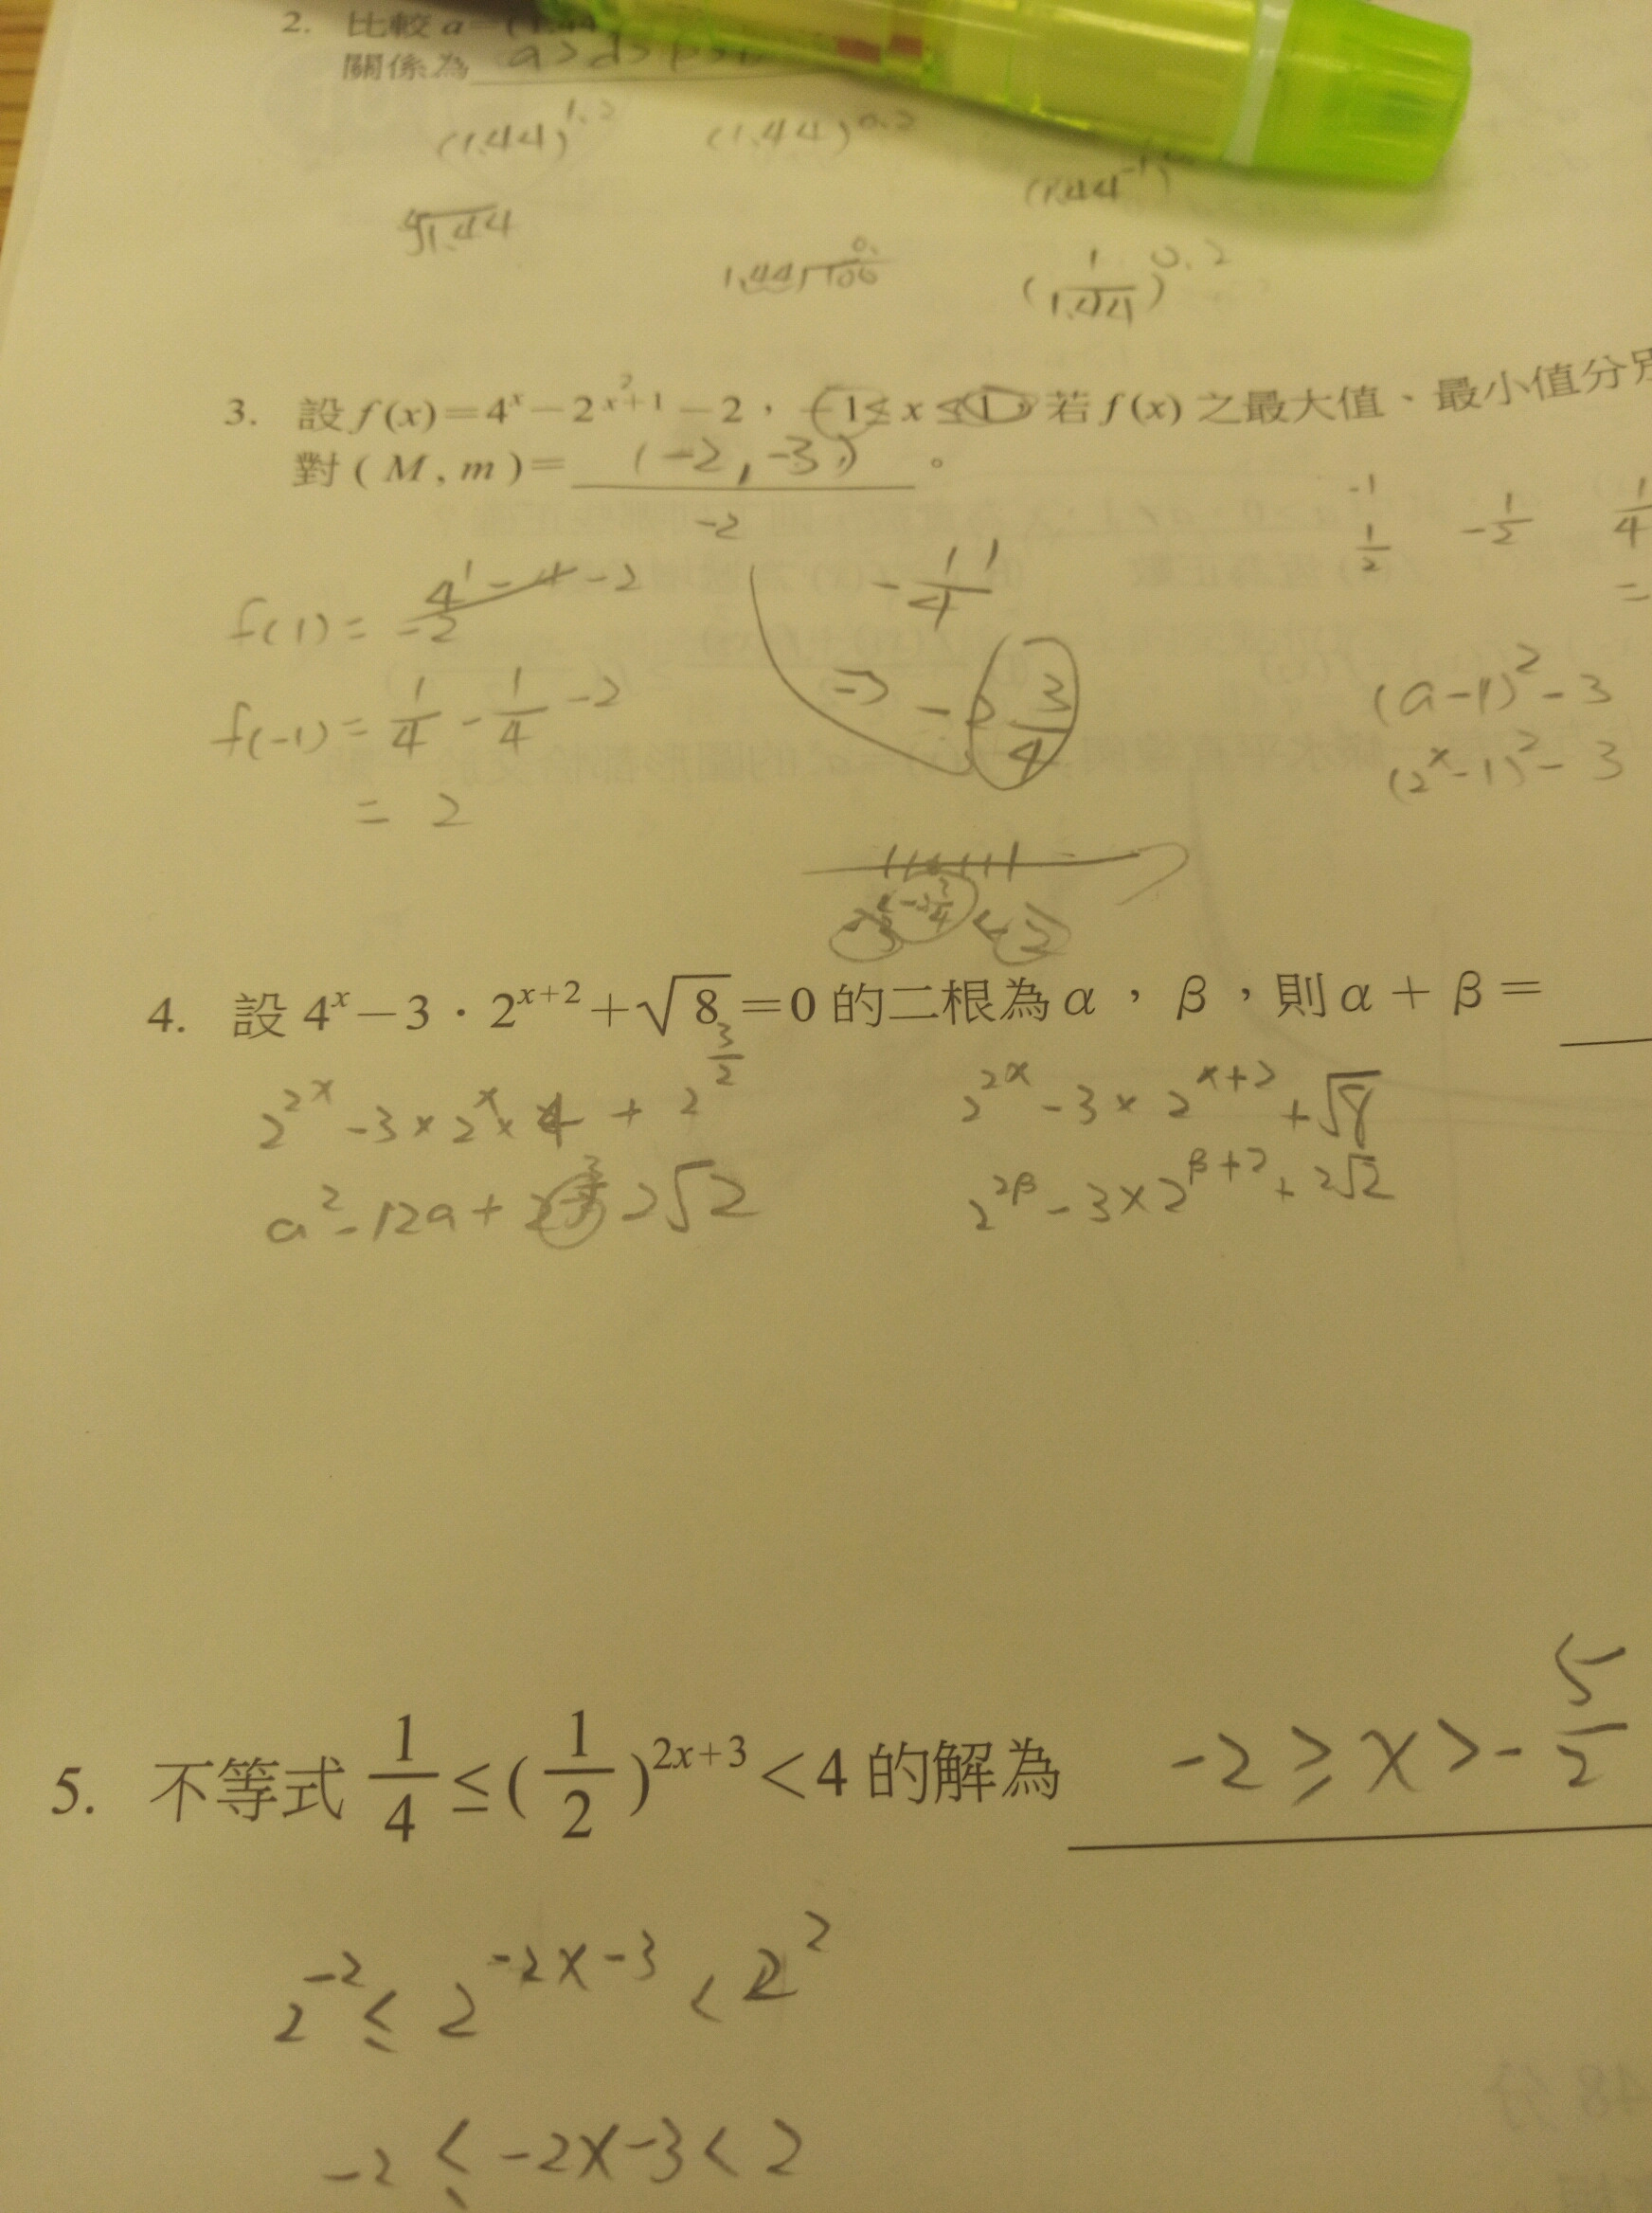 2. 比較 a=(1.44
關係為 a>d>b>
(1.44)^1.2 (1.44)^0.2
(1.44^-1)
⁴√1.44
1.44√100
(1/1.44)^0.2
3. 設 f(x)=4^x-2^(x+1)-2，-1≤x≤1，若 f(x) 之最大值、最小值分別
對 ( M , m )= (-2,-3) 。
-2
-1
1/2 -1/2 1/4
f(1)= 4^1-4-2
=-2
-1/4
f(-1)= 1/4 - 1/4 -2
⇒ -2 3/4
(a-1)^2-3
(2^x-1)^2-3
= 2
-3 -2 3/4 <-2
4. 設 4^x-3·2^(x+2)+√8=0 的二根為 α，β，則 α+β=
2^2x -3×2^x×4 + 2^(3/2)
2^2x -3×2^(x+2)+√8
a^2-12a+ 2√2
2^2β-3×2^(β+2)+2√2
5. 不等式 1/4≤(1/2)^(2x+3)<4 的解為 -2≥x>-5/2
2^-2≤2^(-2x-3)<2^2
-2≤-2x-3<2
48 分